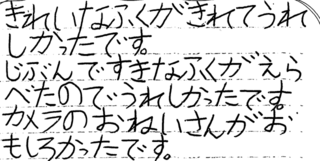 きれいなふくがきれてうれ
しかったです。
じぶんですきなふくがえら
べたのでうれしかったです。
カメラのおねいさんがお
もしろかったです。